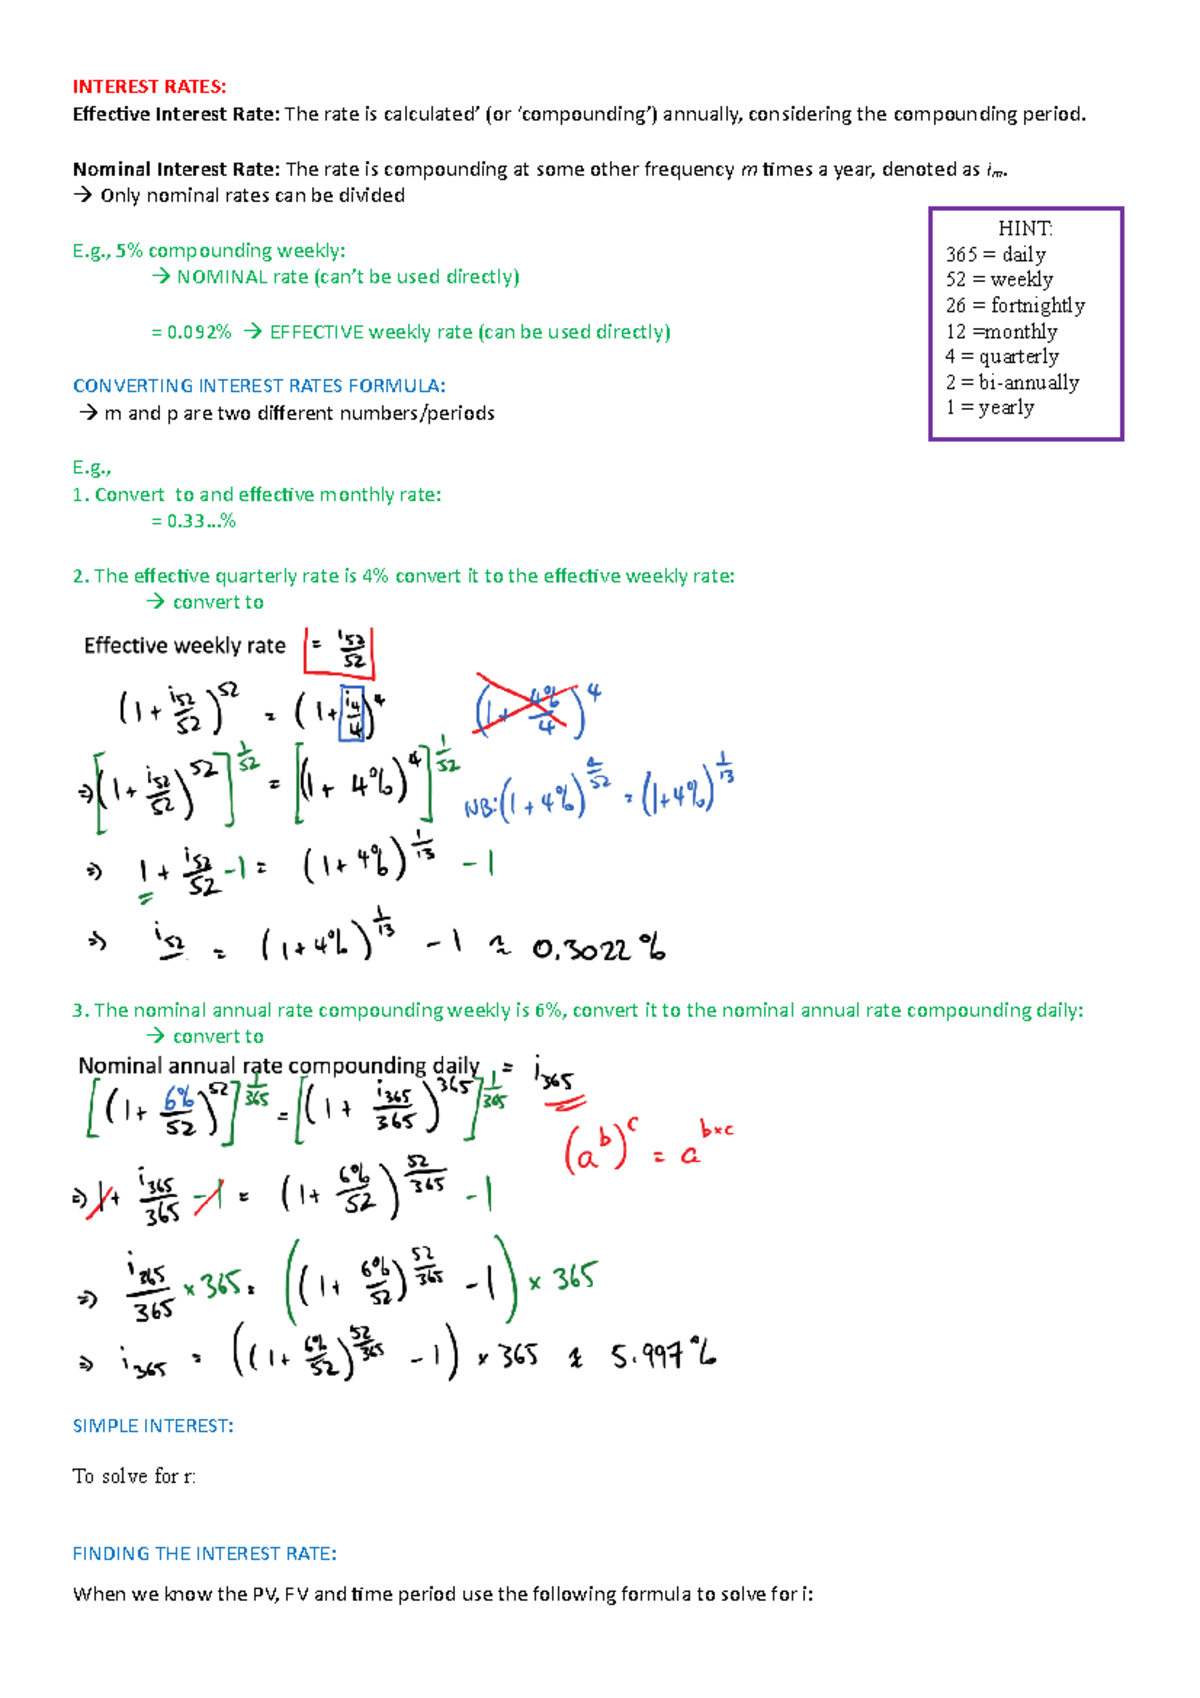 INTEREST RATES:
Effective Interest Rate: The rate is calculated’ (or ‘compounding’) annually, considering the compounding period.
Nominal Interest Rate: The rate is compounding at some other frequency m times a year, denoted as iₘ.
→ Only nominal rates can be divided
HINT:
365 = daily
52 = weekly
26 = fortnightly
12 =monthly
4 = quarterly
2 = bi-annually
1 = yearly
E.g., 5% compounding weekly:
→ NOMINAL rate (can’t be used directly)
= 0.092% → EFFECTIVE weekly rate (can be used directly)
CONVERTING INTEREST RATES FORMULA:
→ m and p are two different numbers/periods
E.g.,
1. Convert to and effective monthly rate:
= 0.33...%
2. The effective quarterly rate is 4% convert it to the effective weekly rate:
→ convert to
Effective weekly rate = i52/52
(1 + i52/52)^52 = (1 + i4/4)^4 (1 + 4%/4)^4
⇒ [(1 + i52/52)^52]^1/52 = [(1 + 4%)^4]^1/52 NB: (1 + 4%)^4/52 = (1 + 4%)^1/13
⇒ 1 + i52/52 - 1 = (1 + 4%)^1/13 - 1
⇒ i52 = (1 + 4%)^1/13 - 1 ≈ 0.3022%
3. The nominal annual rate compounding weekly is 6%, convert it to the nominal annual rate compounding daily:
→ convert to
Nominal annual rate compounding daily = i365
[(1 + 6%/52)^52]^1/365 = [(1 + i365/365)^365]^1/365
(a^b)^c = a^b×c
⇒ 1 + i365/365 - 1 = (1 + 6%/52)^52/365 - 1
⇒ i365/365 × 365 = ((1 + 6%/52)^52/365 - 1) × 365
⇒ i365 = ((1 + 6%/52)^52/365 - 1) × 365 ≈ 5.997%
SIMPLE INTEREST:
To solve for r:
FINDING THE INTEREST RATE:
When we know the PV, FV and time period use the following formula to solve for i: